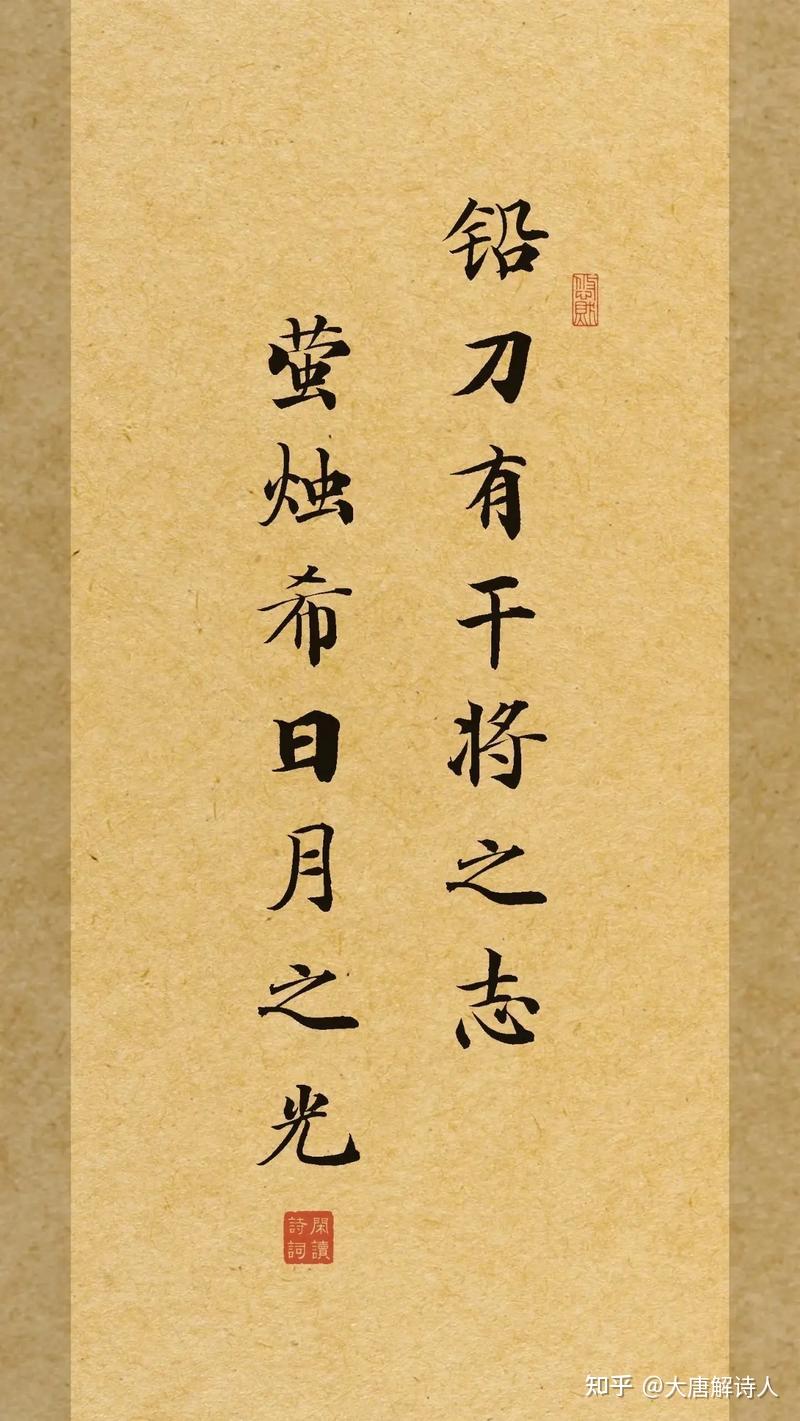 铅刀有干将之志
萤烛希日月之光
閑讀
詩詞
知乎 @大唐解诗人